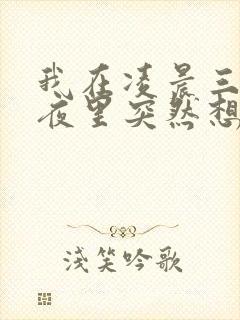 我在凌晨三
夜里突然想
浅笑吟歌